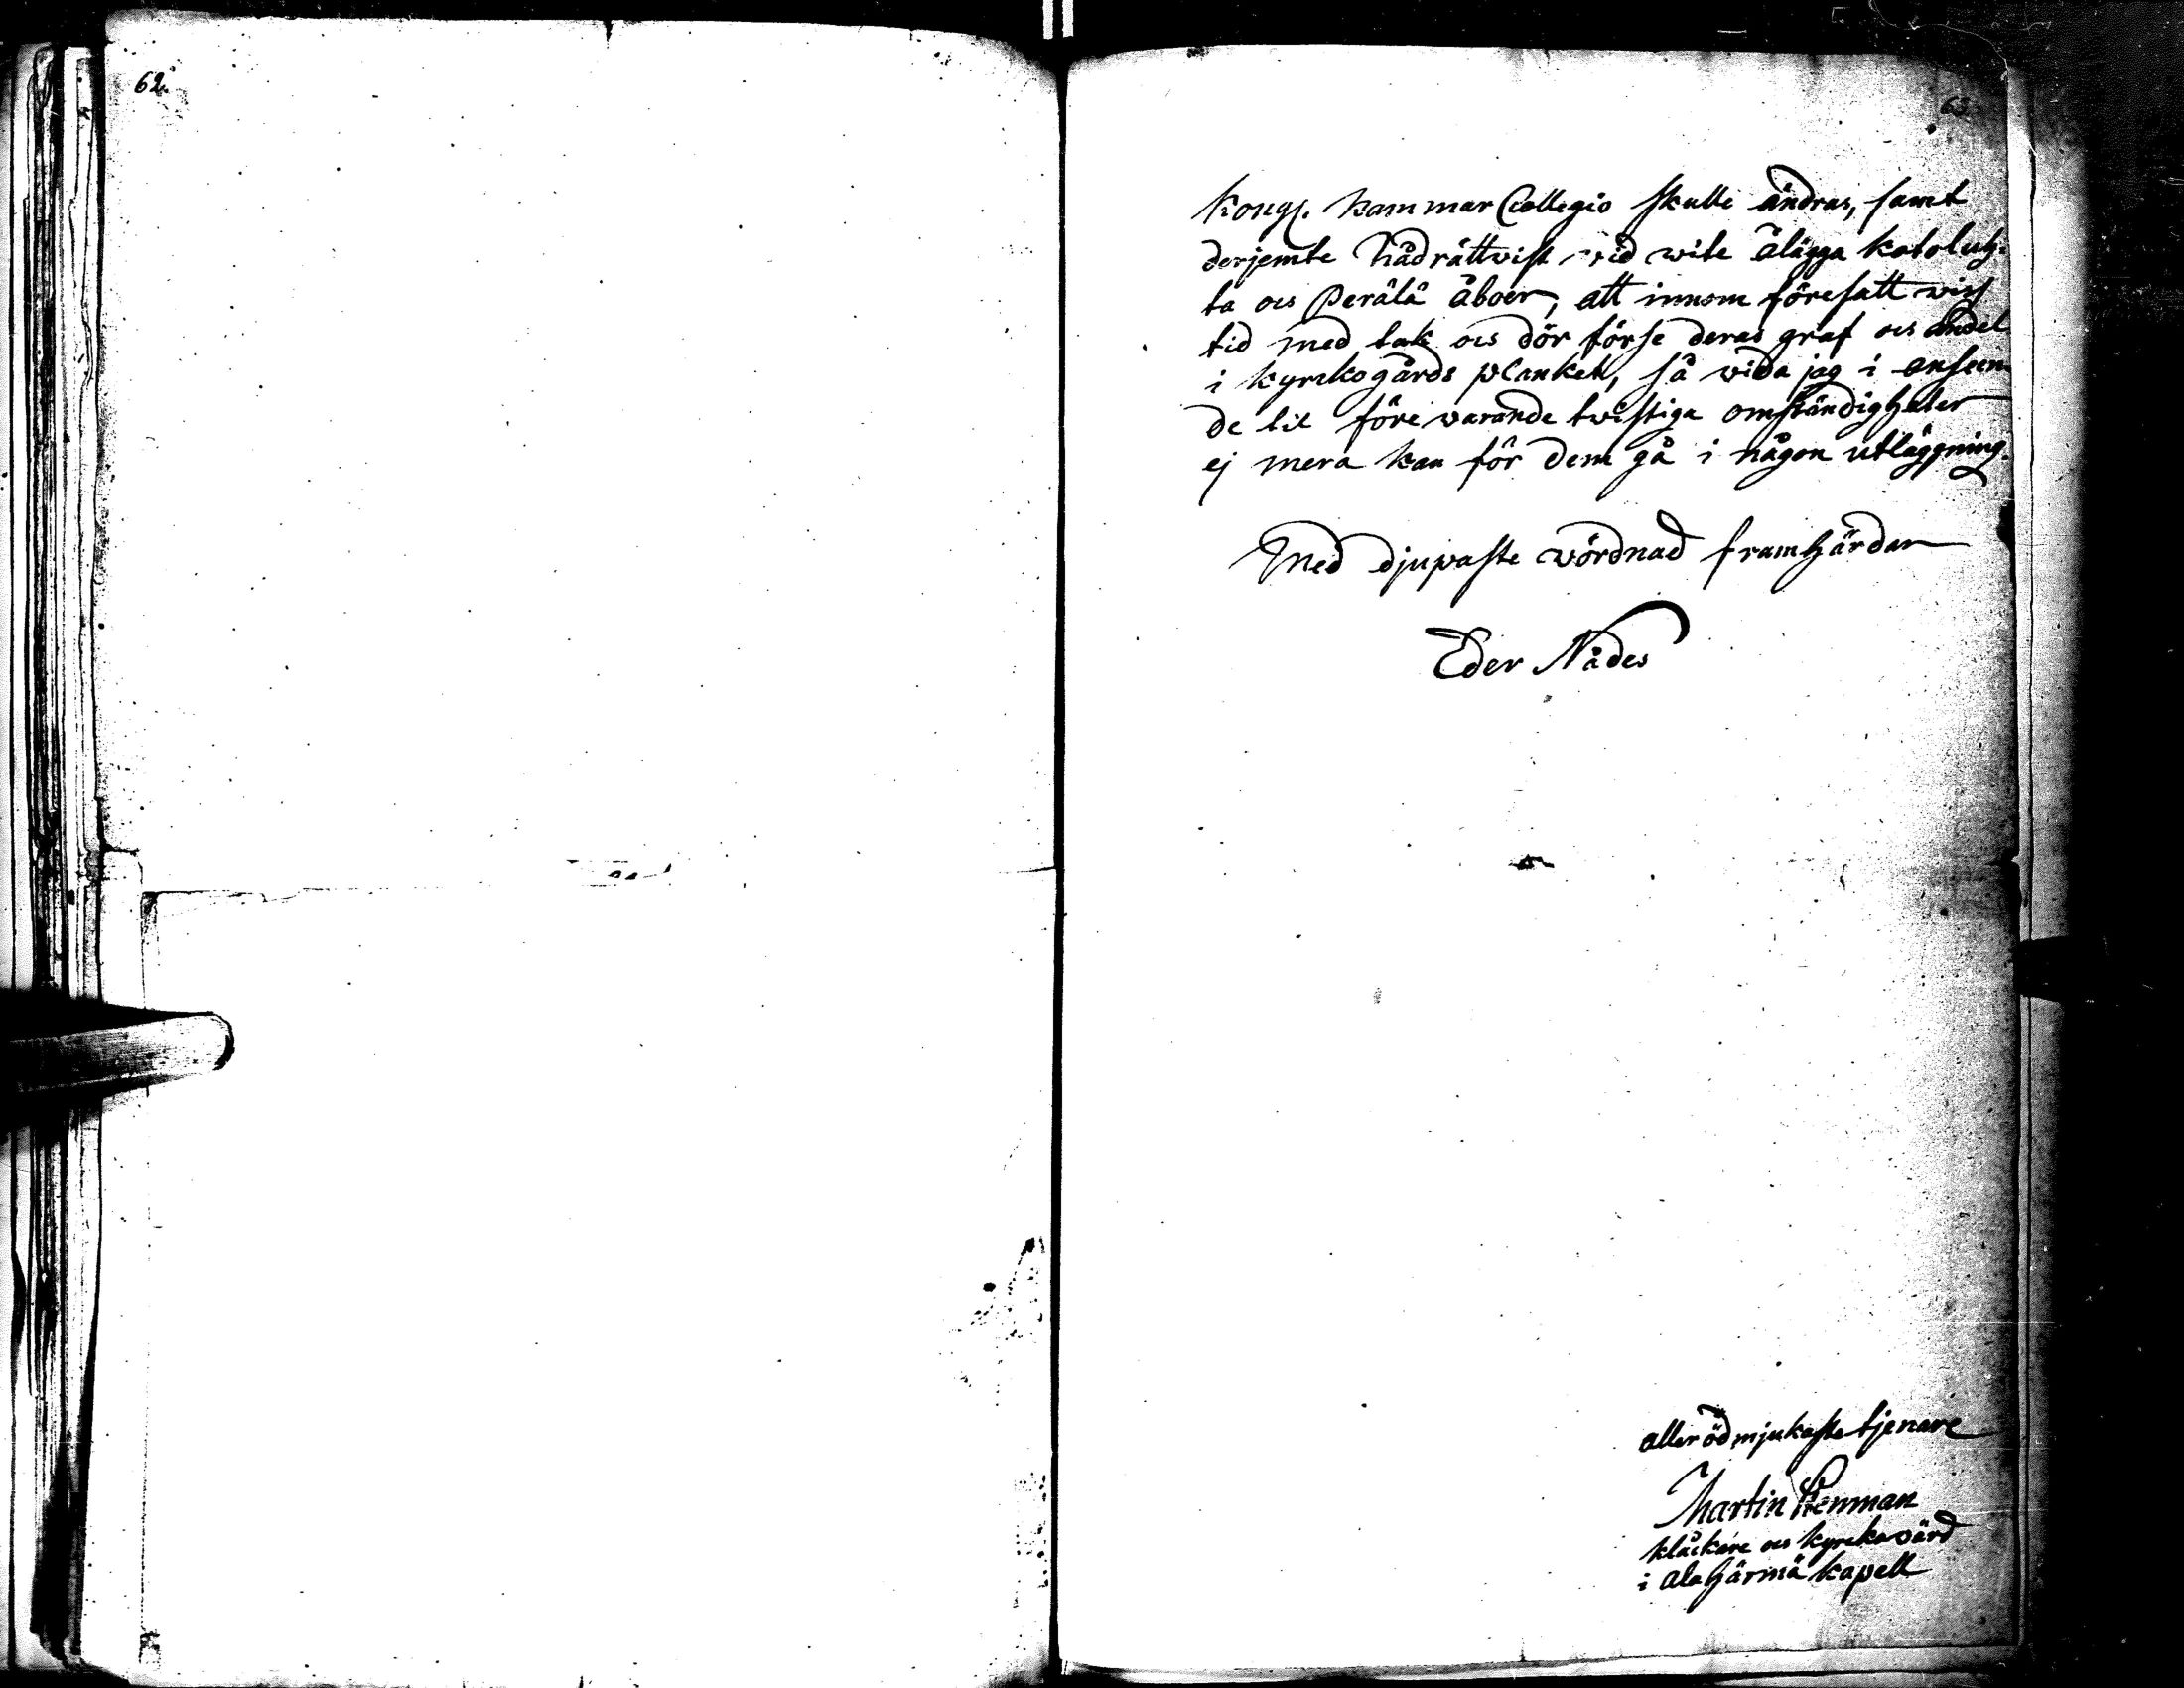 62.
63.
Kongl. Kammar Collegio skulle ändras, samt
derjemte nådrättvist vid wite ålägga Katoluh-
ta ocs Perälä åboer, att innom föresatt wiss
tid med tak ocs dör förse deras graf ocs andel
i kyrckogårds planket, så vida jag i anseen-
de til förevarande twistiga omständigheter
ej mera kan för dem gå i någon utläggning.
Med djupaste wördnad framhärdar
Eder Nådes
allerödmjukaste tjenare
Martin
klåckare ocs kyrckovärd
i alahärmä kapell